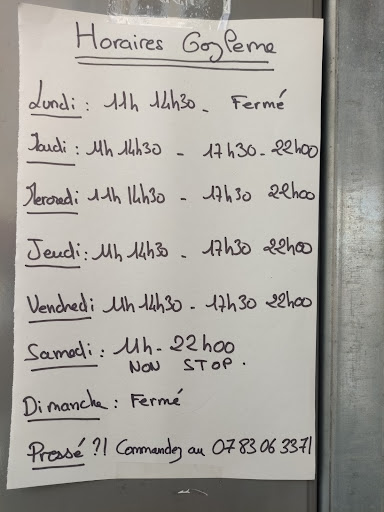 Horaires Gozleme
Lundi : 11h 14h30 - Fermé
Mardi : 11h 14h30 - 17h30 - 22h00
Mercredi 11h 14h30 - 17h30 22h00
Jeudi : 11h 14h30 - 17h30 22h00
Vendredi 11h 14h30 - 17h30 22h00
Samedi : 11h - 22h00
NON STOP .
Dimanche : Fermé
Pressé ?! Commandez au 07 83 06 33 71